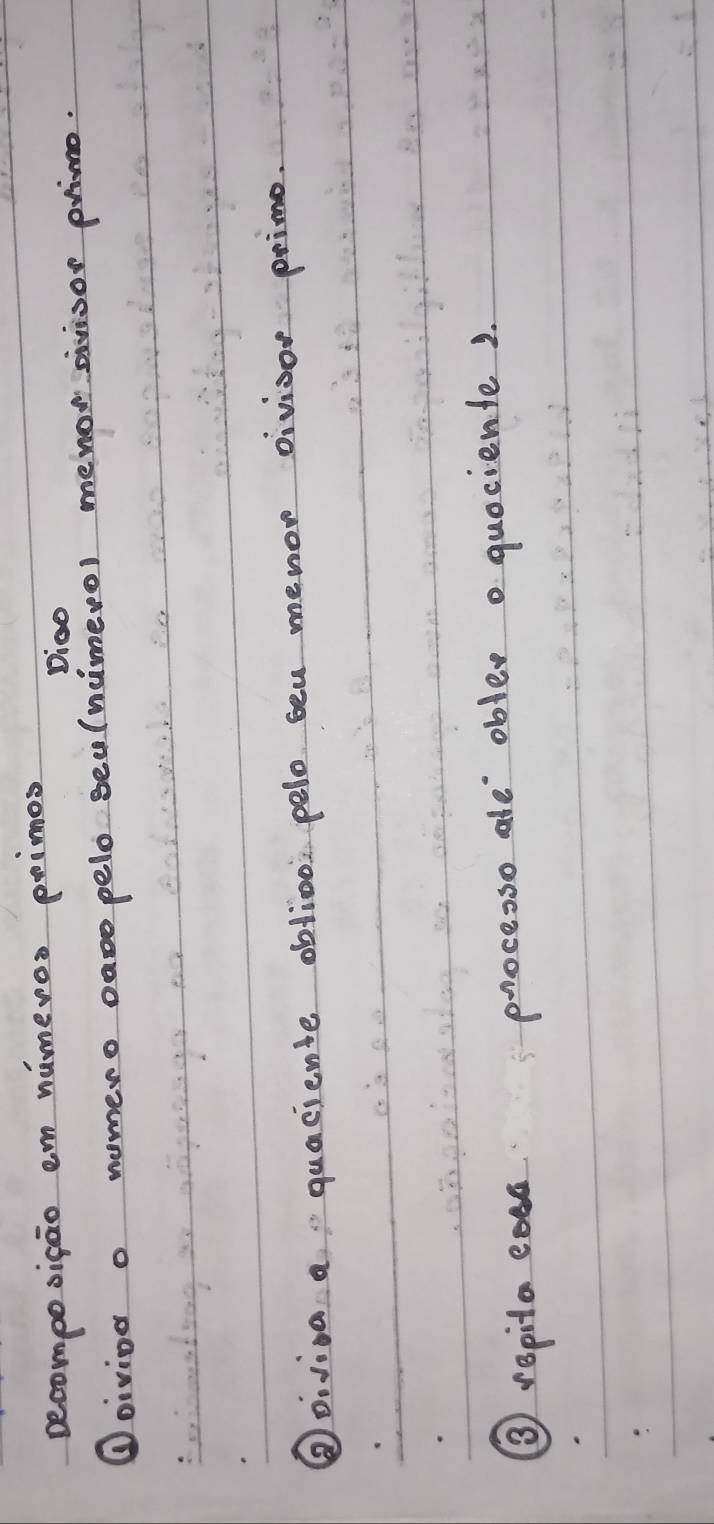 Decomposição em números primos
Dico
① Divida o numero dado pelo seu (número) menor divisor primo.
② Divida a quaciente obtido pelo seu menor divisor primo.
③ repita processo até obter o quociente 1.